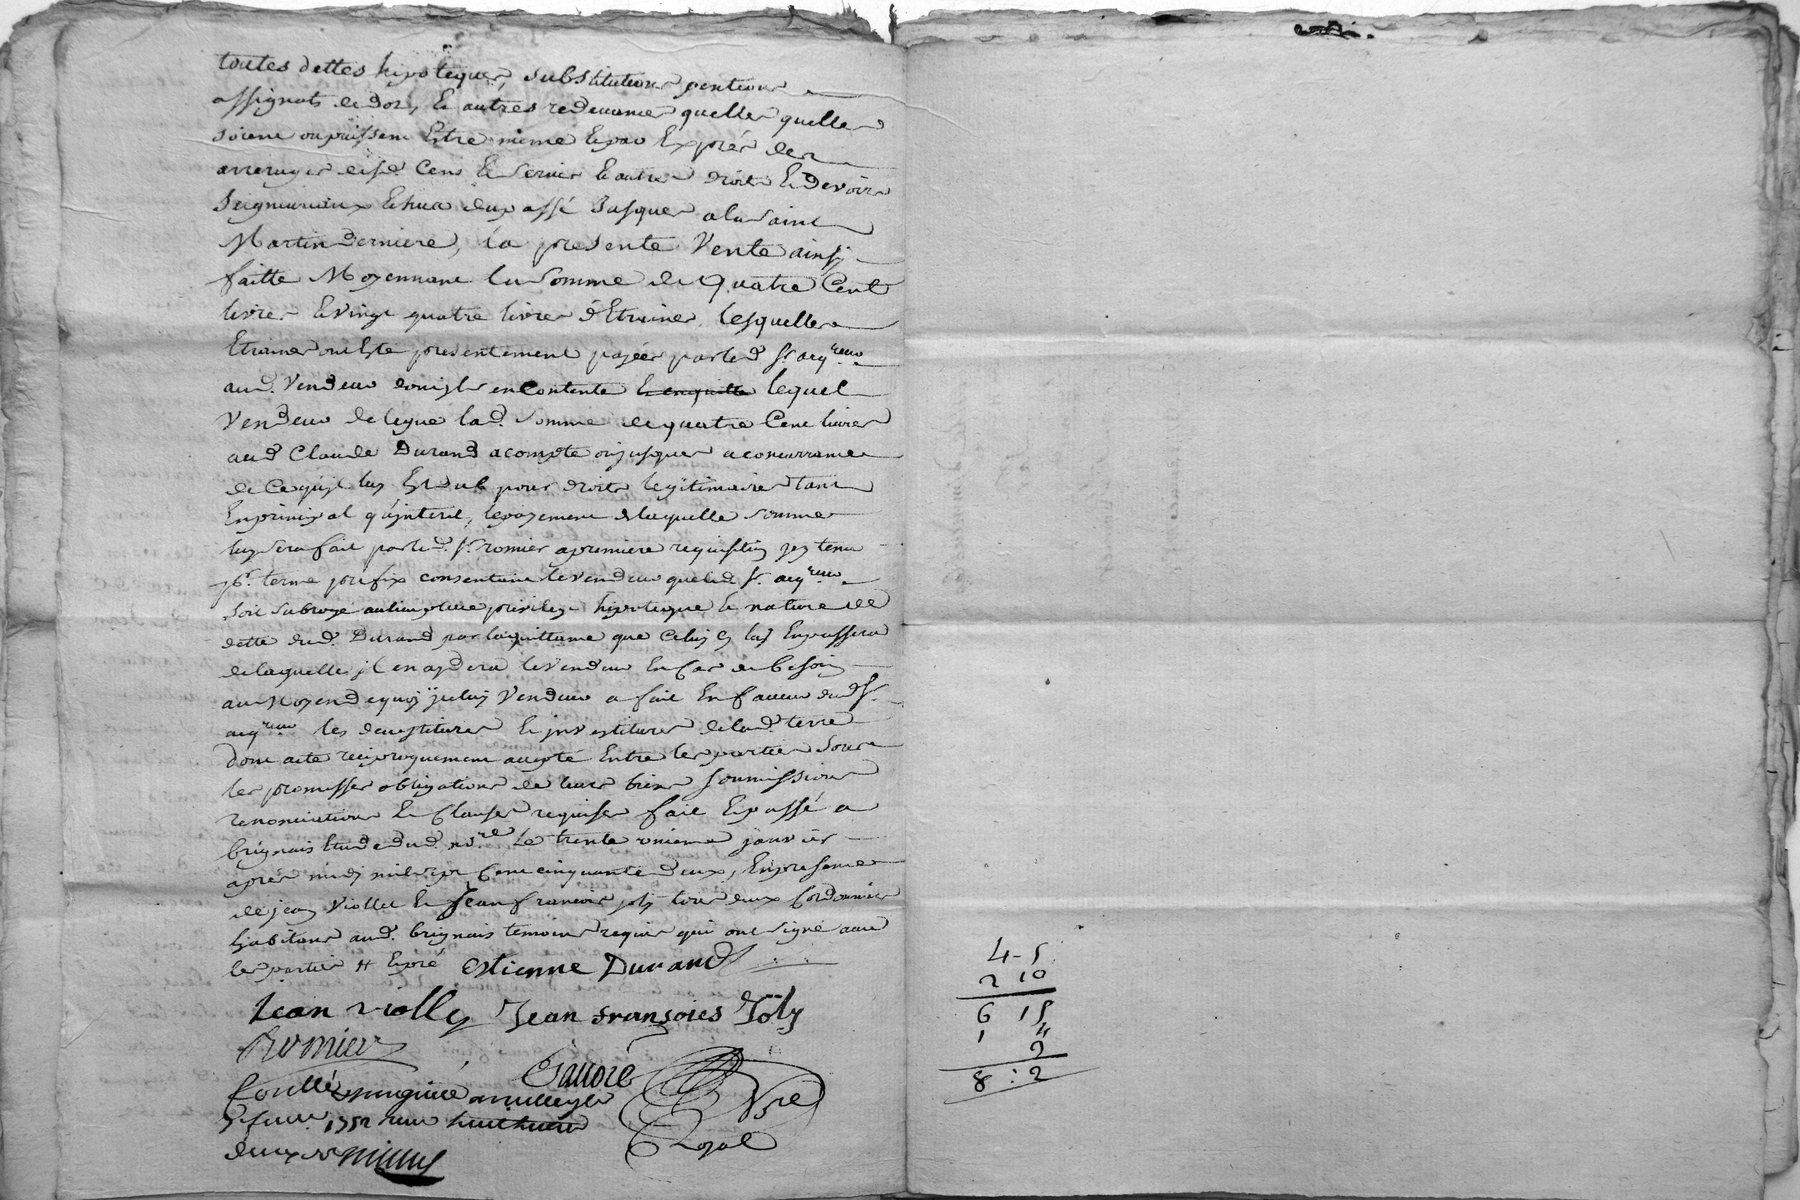 toutes dettes hipoteques, substitutions pentions
assignats de dot, & autres redevances quelles quelles
soient ou puissent Estre meme Expres des
arrerages desd. Cens & Servis & autres droits & devoirs
Seigneuriaux Echus du passé Jusques a la Saint
Martin derniere, la presente Vente ainsy
faitte Moyennant la somme de quatre Cent
livres & vingt quatre livres d'Etraines, lesquelles
Etraines ont Esté presentement payées par led Sr. acqreur
aud. Vendeur content lequel
Vendeur delegue lad. somme de quatre Cent livres
aud Claude Durand acompte ou jusques a concurrance
de Ce qu'jl luy Est dub pour droits legitimaires tant
En principal qu'jnterest, le payement de laquelle somme
luy sera fait par led. Sr. romier a premiere requisition
pr. terme prefix consentant le vendeur que led Sr. acqreur
soit subrogé au lieu place privilege hipoteque & nature de
dette dud. Durand par la quittance que Celuy cy luy En passera
de laquelle jl en aydera le vendeur En Cas de besoin
au Moyen de quoy jceluy Vendeur a fait En faveur dud Sr.
acqreur les devestitures & jnvestitures de lad. terre
dont acte reciproquement accepté Entre les parties sous
les promesses obligations de leurs biens soumissions
renonciations & Clauses requises fait & passé a
brignais Etude dud. nore. Le trente unieme janvier
apres midy mil sept Cent cinquante deux, En presence
de jean Viollet & Jean francois joly tous deux Cordonniers
habitans aud. brignais temoins requis qui ont signé avec
les parties
Estienne Durand
Jean violly Jean fransoies Joly
Romier
Controllé
1752
Nre
Royal
4-5
2 10
6 15
1 "
2
8:2